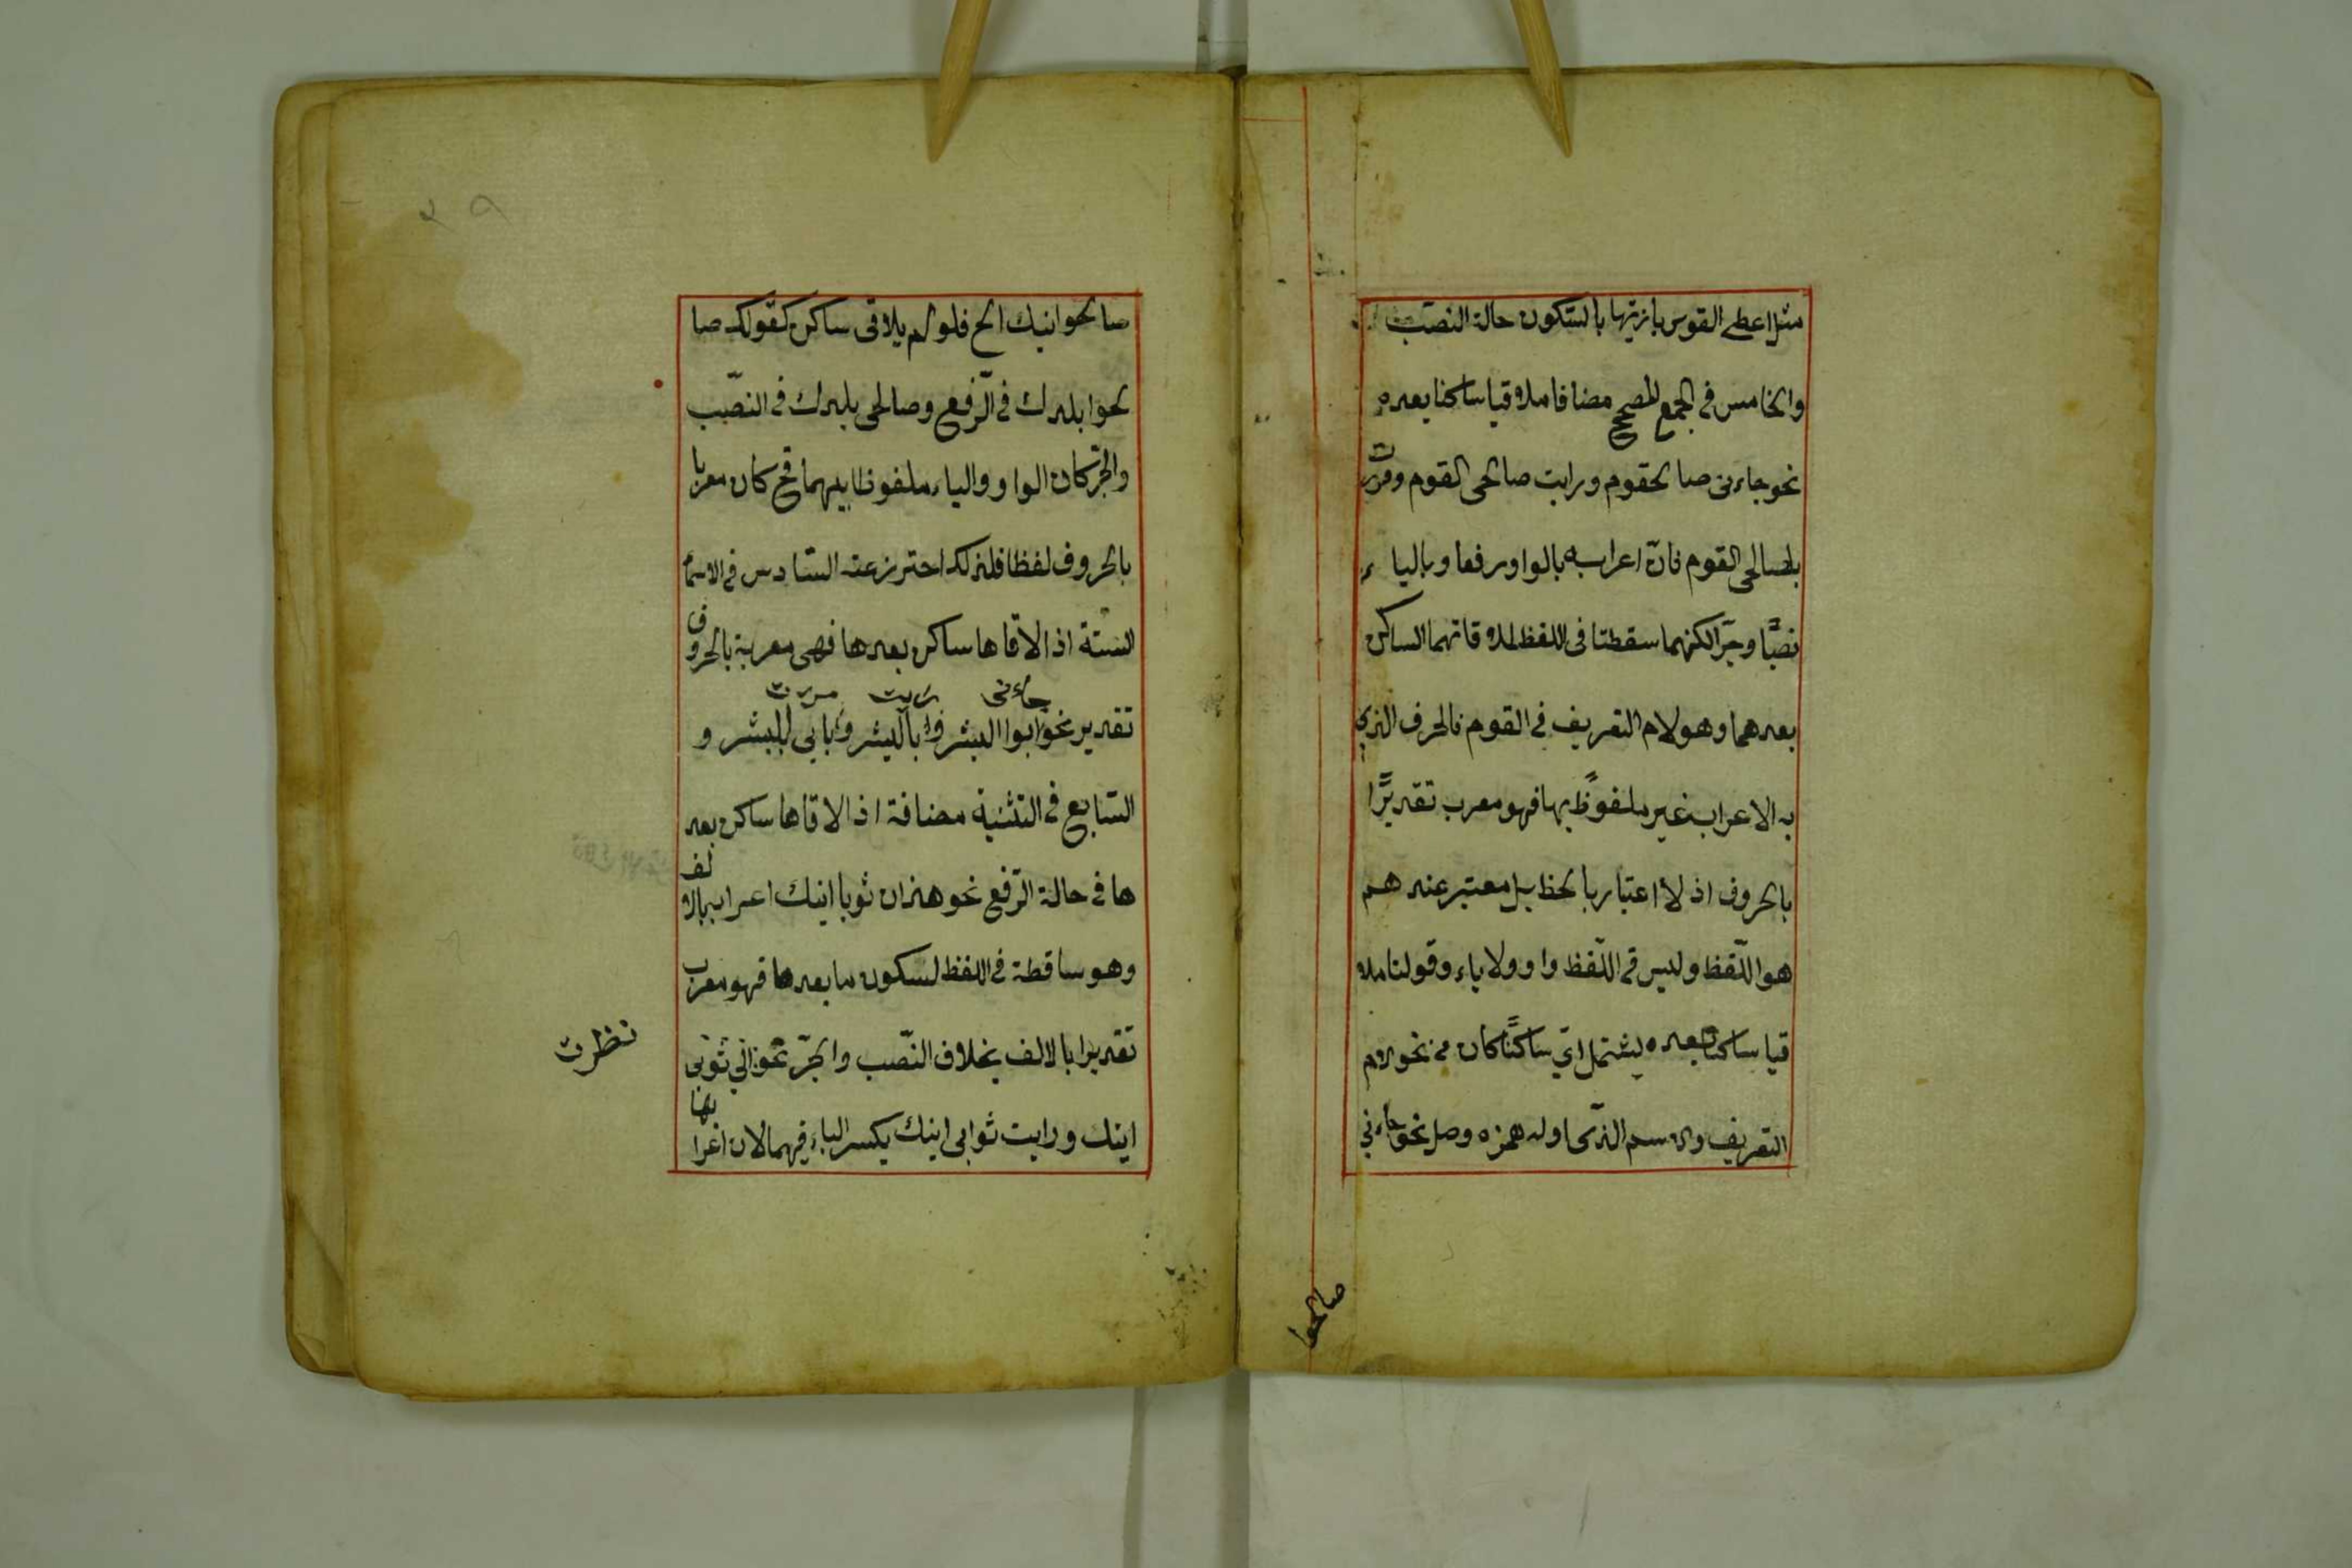 مثل اعط القوس باريها بالسّكون حالة النصب
والخامس في الجمع المصحح مضافا ملاقيا ساكنا بعده
نحو جاءنى صالحوا القوم ورايت صالحى القوم ومررت
بصالحى القوم فانّ اعرابه بالواو رفعا وبالياء
نصبًا وجرّا لكنهما سقطتا فى اللفظ لملاقاتهما الساكن
بعدهما وهو لام التعريف في القوم فالحرف الذي
به الاعراب غير ملفوظ بها فهو معرب تقديرًا
بالحروف اذ لا اعتبار بالخط بل معتبر عندهم
هو اللّفظ وليس في اللّفظ واو ولا ياء وقولنا ملا
قيا ساكنا بعده ليشتمل ايّ ساكنًا كان من نحو لام
التعريف والاسم الذّى اوله همزه وصل نحو جاءني
صالحوا
صالحوا ابنك الخ فلو لم يلاقى ساكن كقولك صا
لحوا بلدك في الرّفع وصالحى بلدك فى النصّب
والجرّ كان الواو والياء ملفوظا بهما فح كان معربا
بالحروف لفظا فلذلك احترز عنه السّادس في الاسماء
الستّة اذا لاقاها ساكن بعدها فهى معربة بالحروف
جاءنى رئيت مررت
تقدير نحو ابوا البشر وابا البشر وبابي البشر و
السّابع في التثنية مضافة اذا لاقاها ساكن بعد
ها في حالة الرّفع نحو هذان ثوبا ابنك اعرابه بالالف
وهو ساقطة في اللفظ لسكون ما بعدها فهو معرب
تقديرا بالالف بخلاف النّصب والجرّ نحو الى ثوبى
نظرت
ابنك ورايت ثوابى ابنك بكسر الباء فيهما لان اعرابها